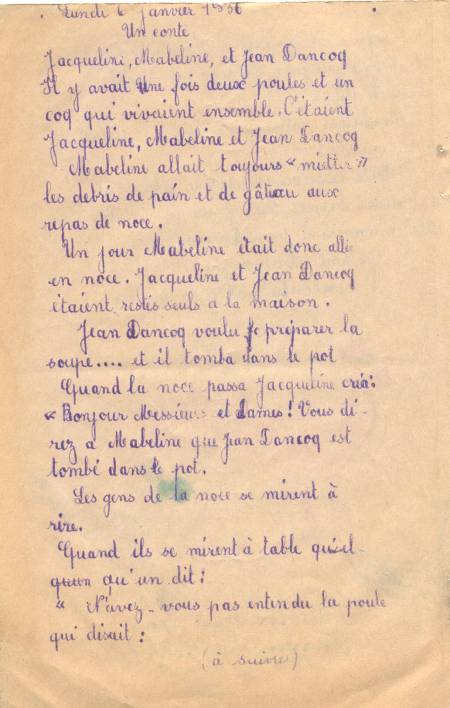 Lundi 6 Janvier 1936
Un conte
Jacqueline, Mabeline, et Jean Dancoq
Il y avait une fois deux poules et un
coq qui vivaient ensemble. C'étaient
Jacqueline, Mabeline et Jean Dancoq
Mabeline allait toujours "mietter"
les debris de pain et de gâteau aux
repas de noce.
Un jour Mabeline était donc allée
en noce. Jacqueline et Jean Dancoq
étaient restés seuls a la maison.
Jean Dancoq voulu préparer la
soupe.... et il tomba dans le pot
Quand la noce passa Jacqueline cria:
"Bonjour Messieurs et Dames! Vous di-
rez a Mabeline que Jean Dancoq est
tombé dans le pot.
Les gens de la noce se mirent à
rire.
Quand ils se mirent à table quel-
qu'un dit:
" N'avez-vous pas entendu la poule
qui disait:
(à suivre)